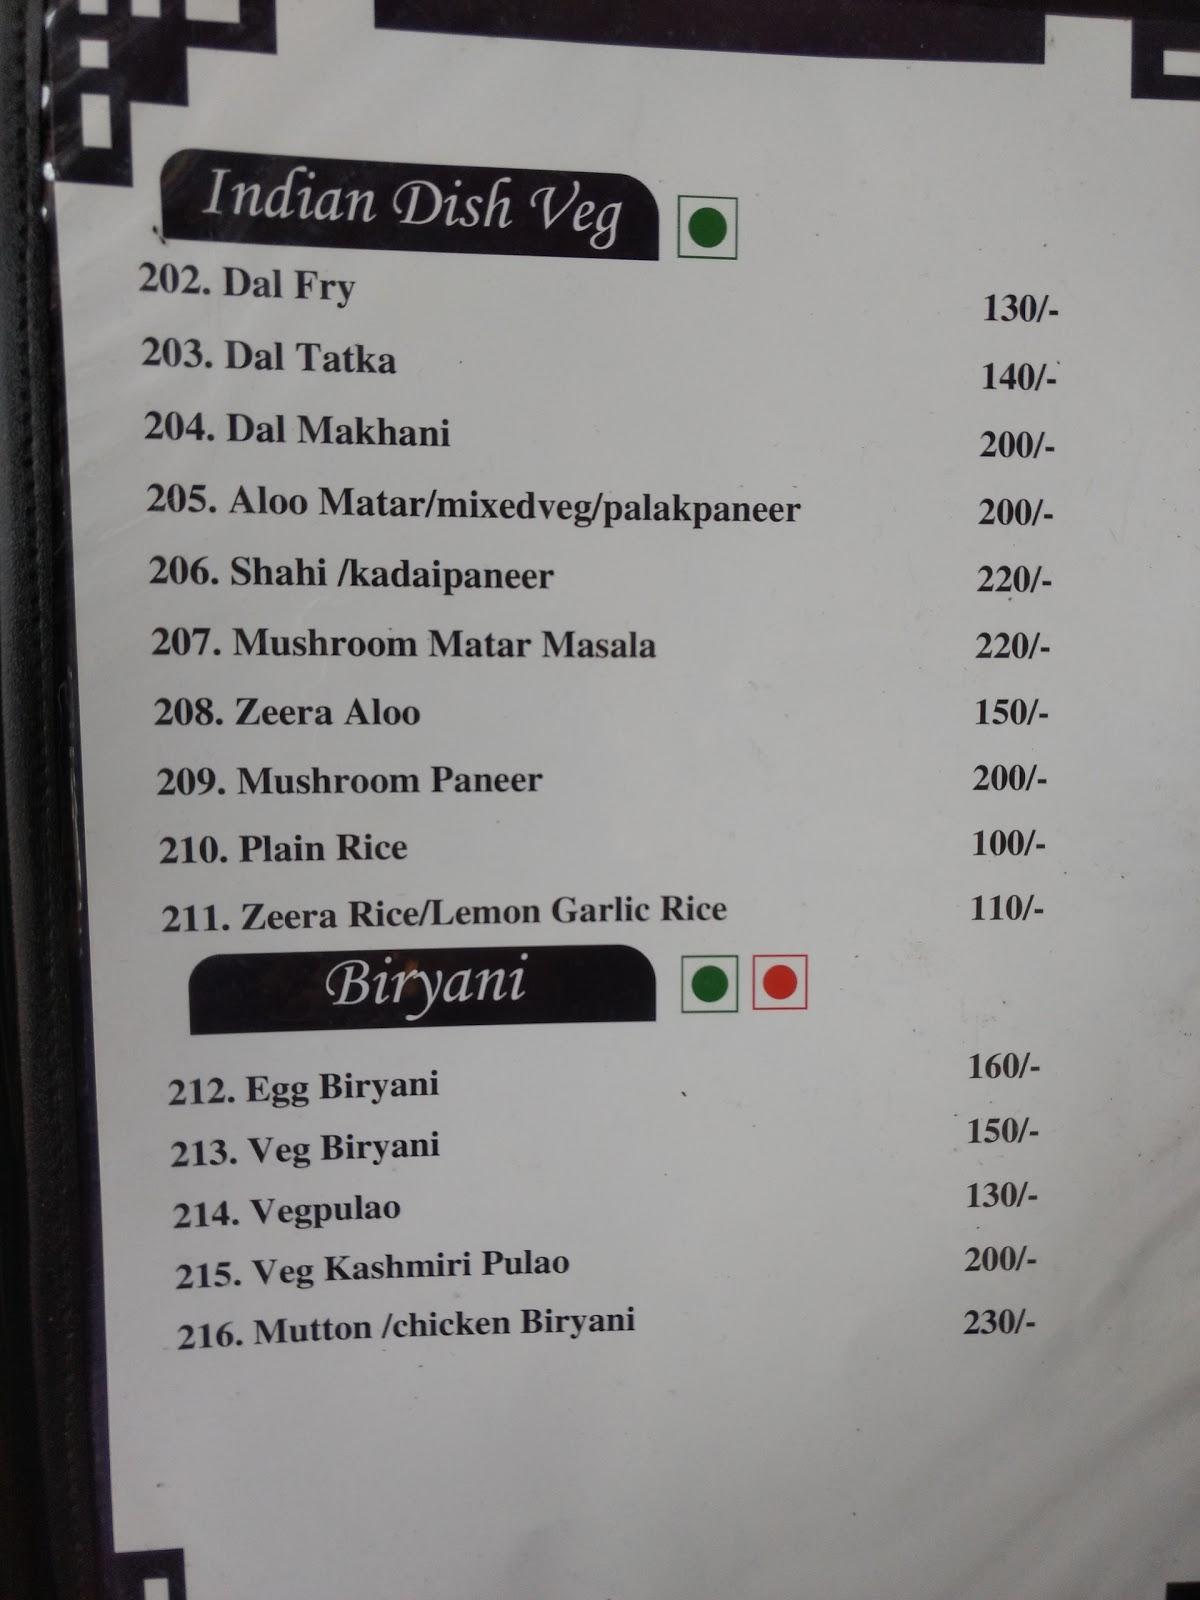 Indian Dish Veg
202. Dal Fry 130/-
203. Dal Tatka 140/-
204. Dal Makhani 200/-
205. Aloo Matar/mixedveg/palakpaneer 200/-
206. Shahi /kadaipaneer 220/-
207. Mushroom Matar Masala 220/-
208. Zeera Aloo 150/-
209. Mushroom Paneer 200/-
210. Plain Rice 100/-
211. Zeera Rice/Lemon Garlic Rice 110/-
Biryani
212. Egg Biryani 160/-
213. Veg Biryani 150/-
214. Vegpulao 130/-
215. Veg Kashmiri Pulao 200/-
216. Mutton /chicken Biryani 230/-